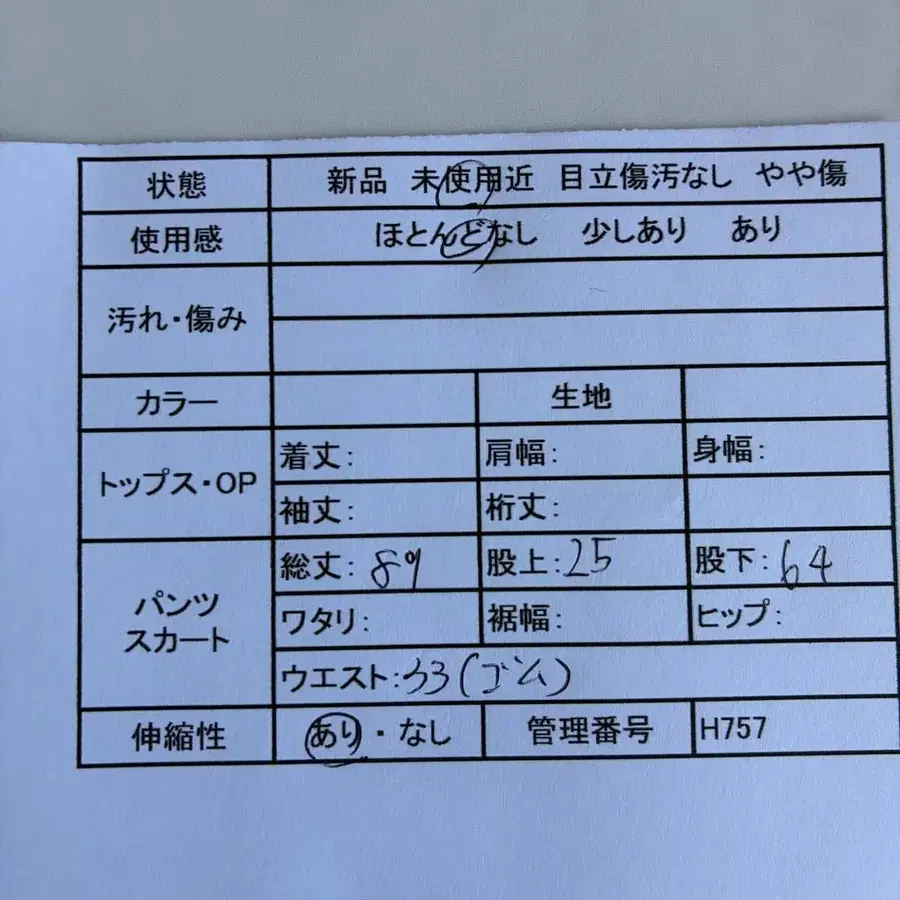 状態 新品 未使用近 目立傷汚なし やや傷
使用感 ほとんどなし 少しあり あり
汚れ・傷み
カラー 生地
トップス・OP 着丈: 肩幅: 身幅:
袖丈: 裄丈:
パンツ スカート 総丈: 89 股上: 25 股下: 64
ワタリ: 裾幅: ヒップ:
ウエスト: 33(ゴム)
伸縮性 あり・なし 管理番号 H757